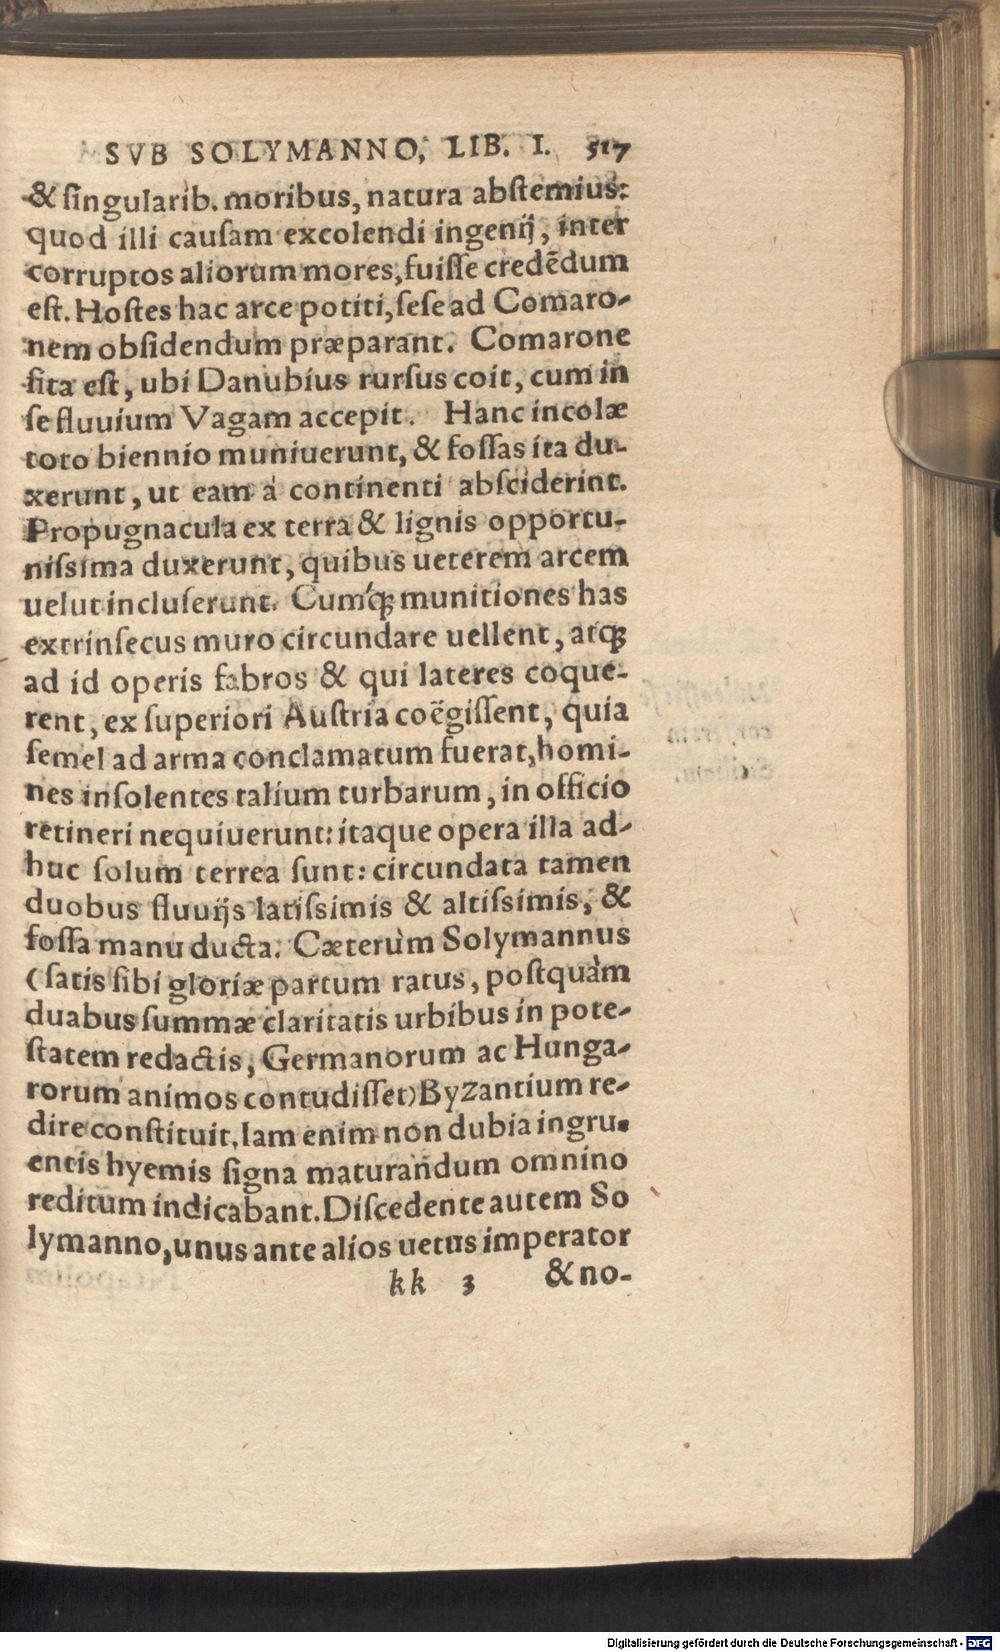 SVB SOLYMANNO, LIB. I. 517
& singularib. moribus, natura abstemius:
quod illi causam excolendi ingenij, inter
corruptos aliorum mores, fuisse credẽdum
est. Hostes hac arce potiti, sese ad Comaro-
nem obsidendum præparant. Comarone
sita est, ubi Danubius rursus coit, cum in
se fluuium Vagam accepit. Hanc incolæ
toto biennio muniuerunt, & fossas ita du-
xerunt, ut eam à continenti absciderint.
Propugnacula ex terra & lignis opportu-
nissima duxerunt, quibus ueterem arcem
uelut incluserunt. Cumq́; munitiones has
extrinsecus muro circundare uellent, atq;
ad id operis fabros & qui lateres coque-
rent, ex superiori Austria coëgissent, quia
semel ad arma conclamatum fuerat, homi-
nes insolentes talium turbarum, in officio
retineri nequiuerunt: itaque opera illa ad-
huc solum terrea sunt: circundata tamen
duobus fluuijs latissimis & altissimis, &
fossa manu ducta. Cæterùm Solymannus
(satis sibi gloriæ partum ratus, postquàm
duabus summæ claritatis urbibus in pote-
statem redactis, Germanorum ac Hunga-
rorum animos contudisset) Byzantium re-
dire constituit. Iam enim non dubia ingru-
entis hyemis signa maturandum omnino
reditum indicabant. Discedente autem So
lymanno, unus ante alios uetus imperator
kk 3 & no-
Digitalisierung gefördert durch die Deutsche Forschungsgemeinschaft - DFG